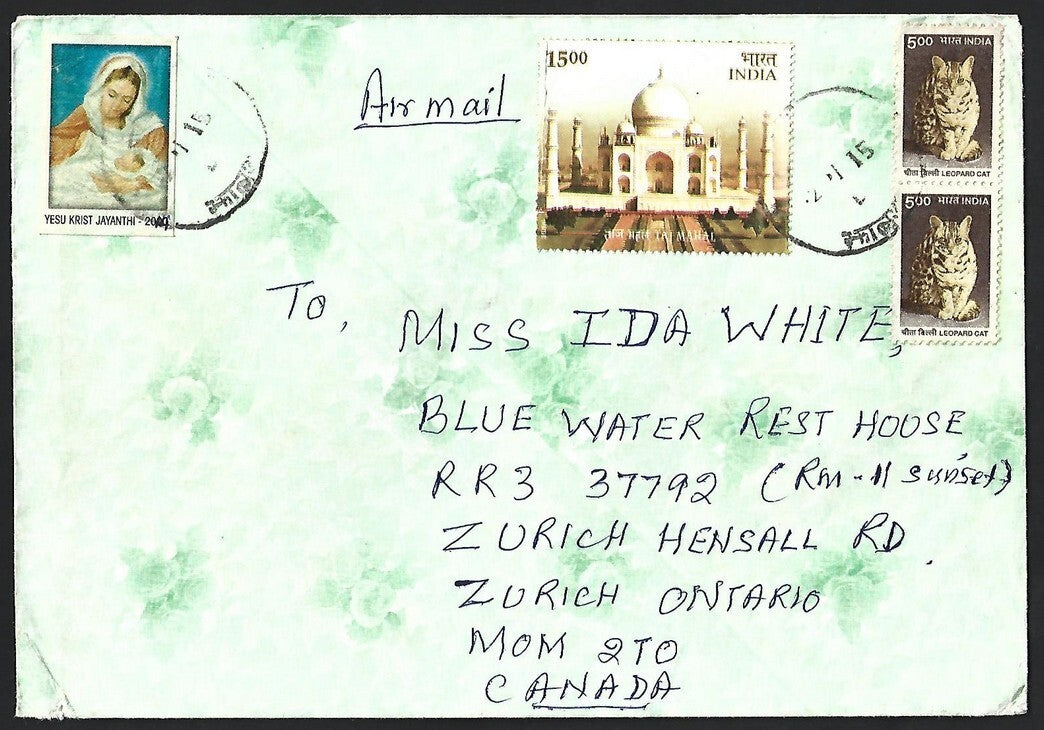 YESU KRIST JAYANTHI - 2000
Air mail
1500 भारत
INDIA
ताज महल TAJ MAHAL
500 भारत INDIA
चीता बिल्ली LEOPARD CAT
500 भारत INDIA
चीता बिल्ली LEOPARD CAT
1 15
2 1 15
To,
MISS IDA WHITE,
BLUE WATER REST HOUSE
RR3 37792 (Rm-11 sunset)
ZURICH HENSALL RD.
ZURICH ONTARIO
MOM 2TO
CANADA